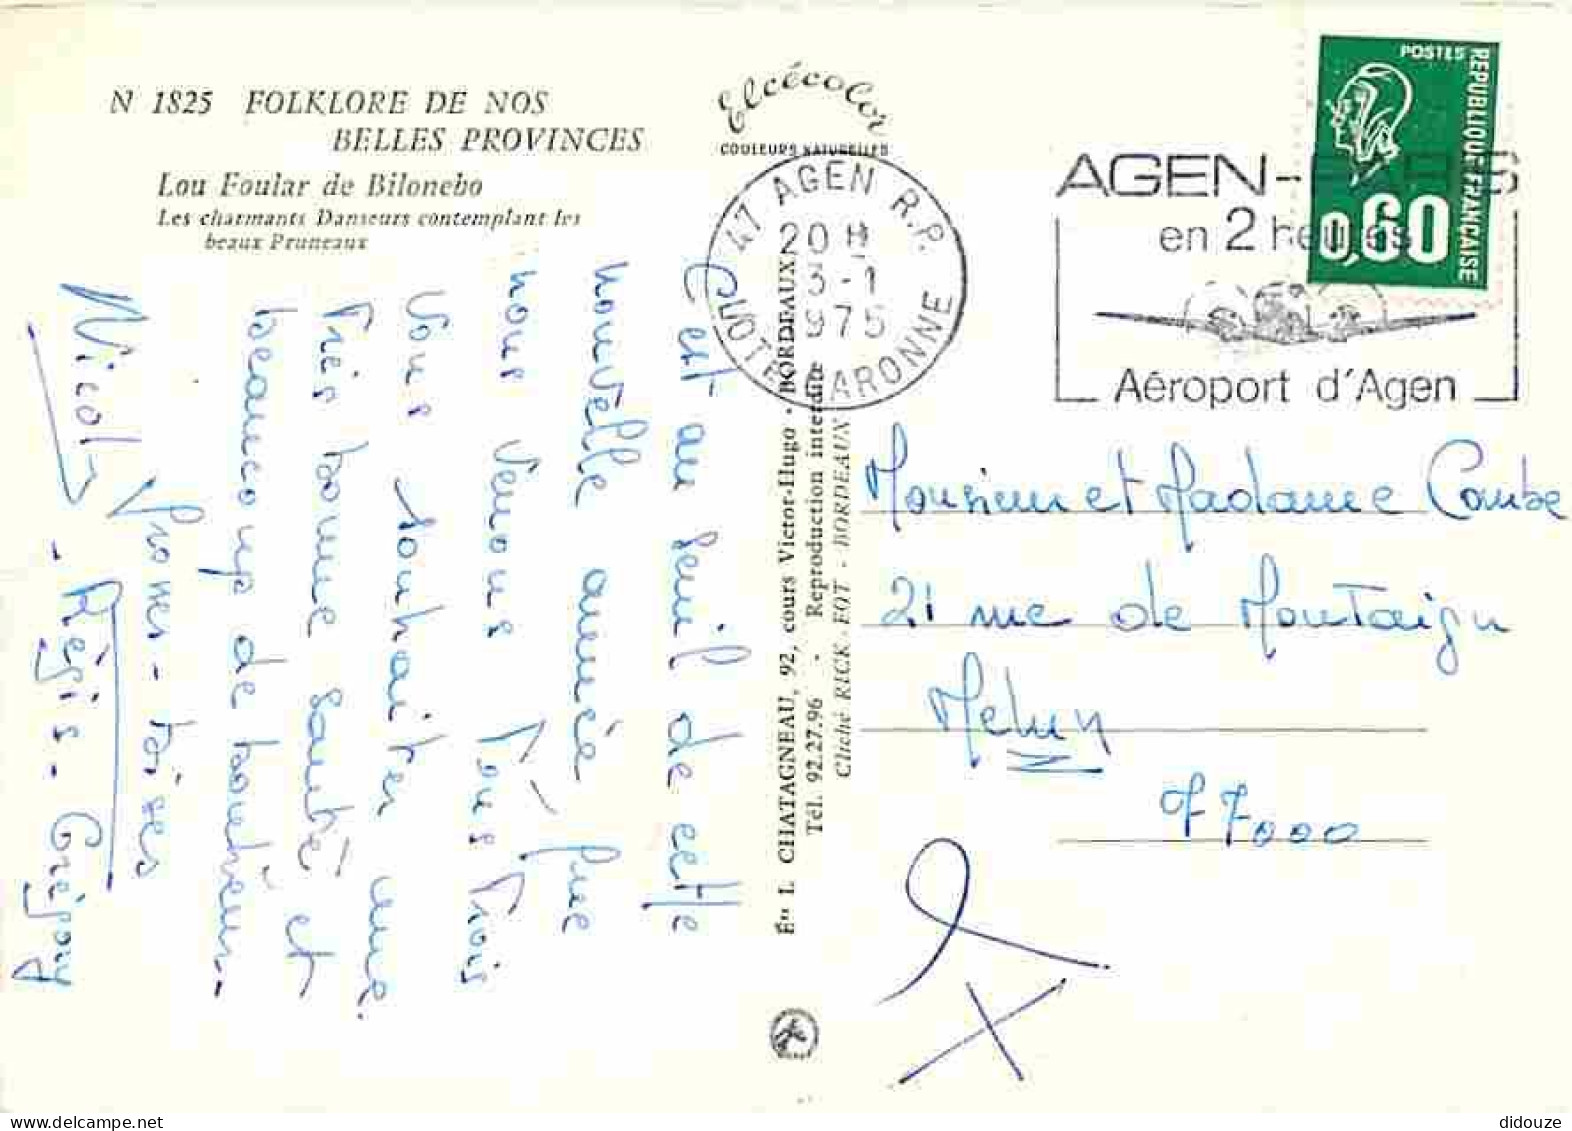 N 1825 FOLKLORE DE NOS
BELLES PROVINCES
Lou Foular de Bilonebo
Les charmants Danseurs contemplant les
beaux Pruneaux
Elcécolor
COULEURS NATURELLES
47 AGEN R.P.
20 H
3-1
1975
LOT ET GARONNE
AGEN-PARIS
en 2 heures
Aéroport d'Agen
POSTES
REPUBLIQUE FRANÇAISE
0,60
C'est au seuil de cette
nouvelle année que
nous venons Tous Trois
vous souhaiter une
Très bonne santé et
beaucoup de bonheur -
grosses - bises
Nicole
- Régis - Grégory
Éts L. CHATAGNEAU, 92, cours Victor-Hugo - BORDEAUX
Tél. 92.27.96 - Reproduction interdite
Cliché RICK-FOT - BORDEAUX
Monsieur et Madame Combe
21 rue de Montaigu
Melun
77000
didouze